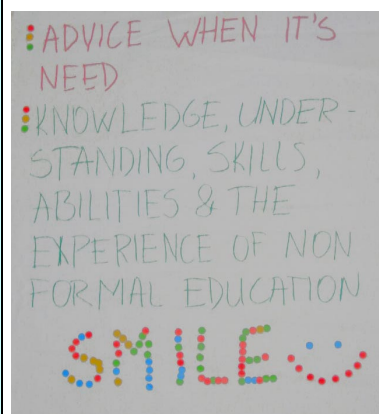 ADVICE WHEN IT'S
NEED
KNOWLEDGE, UNDER-
STANDING, SKILLS,
ABILITIES & THE
EXPERIENCE OF NON
FORMAL EDUCATION
SMILE